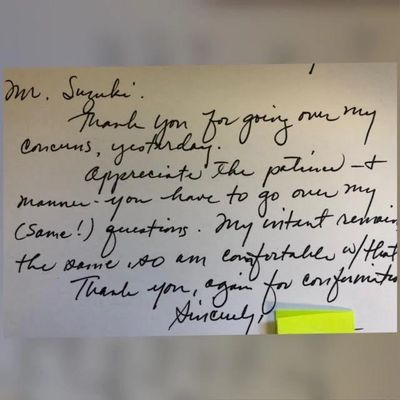 Mr. Suzuki.
Thank you for going over my
concerns, yesterday.
Appreciate the patience +
manner - you have to go over my
(same!) questions. My intant remain
the same, so am comfortable w/ that
Thank you, again for confirmatio
Sincerely,